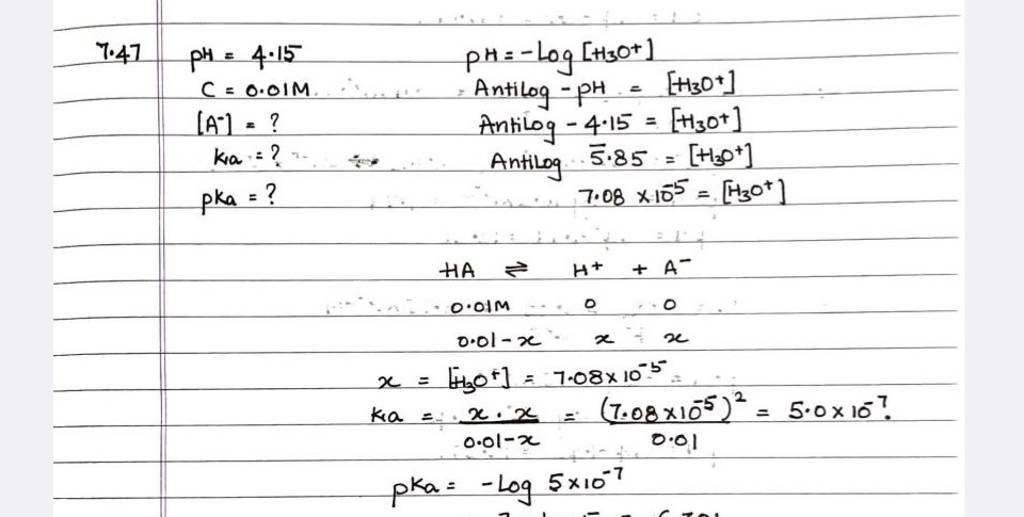 7.47 pH = 4.15 pH = -Log [H3O+]
C = 0.01M Antilog - pH = [H3O+]
[A-] = ? Antilog - 4.15 = [H3O+]
Ka = ? Antilog 5̅.85 = [H3O+]
pKa = ? 7.08 × 10^-5 = [H3O+]
HA ⇌ H+ + A-
0.01M 0 0
0.01-x x x
x = [H3O+] = 7.08 × 10^-5
Ka = x . x / 0.01-x = (7.08 × 10^-5)^2 / 0.01 = 5.0 × 10^-7.
pKa = -Log 5 × 10^-7